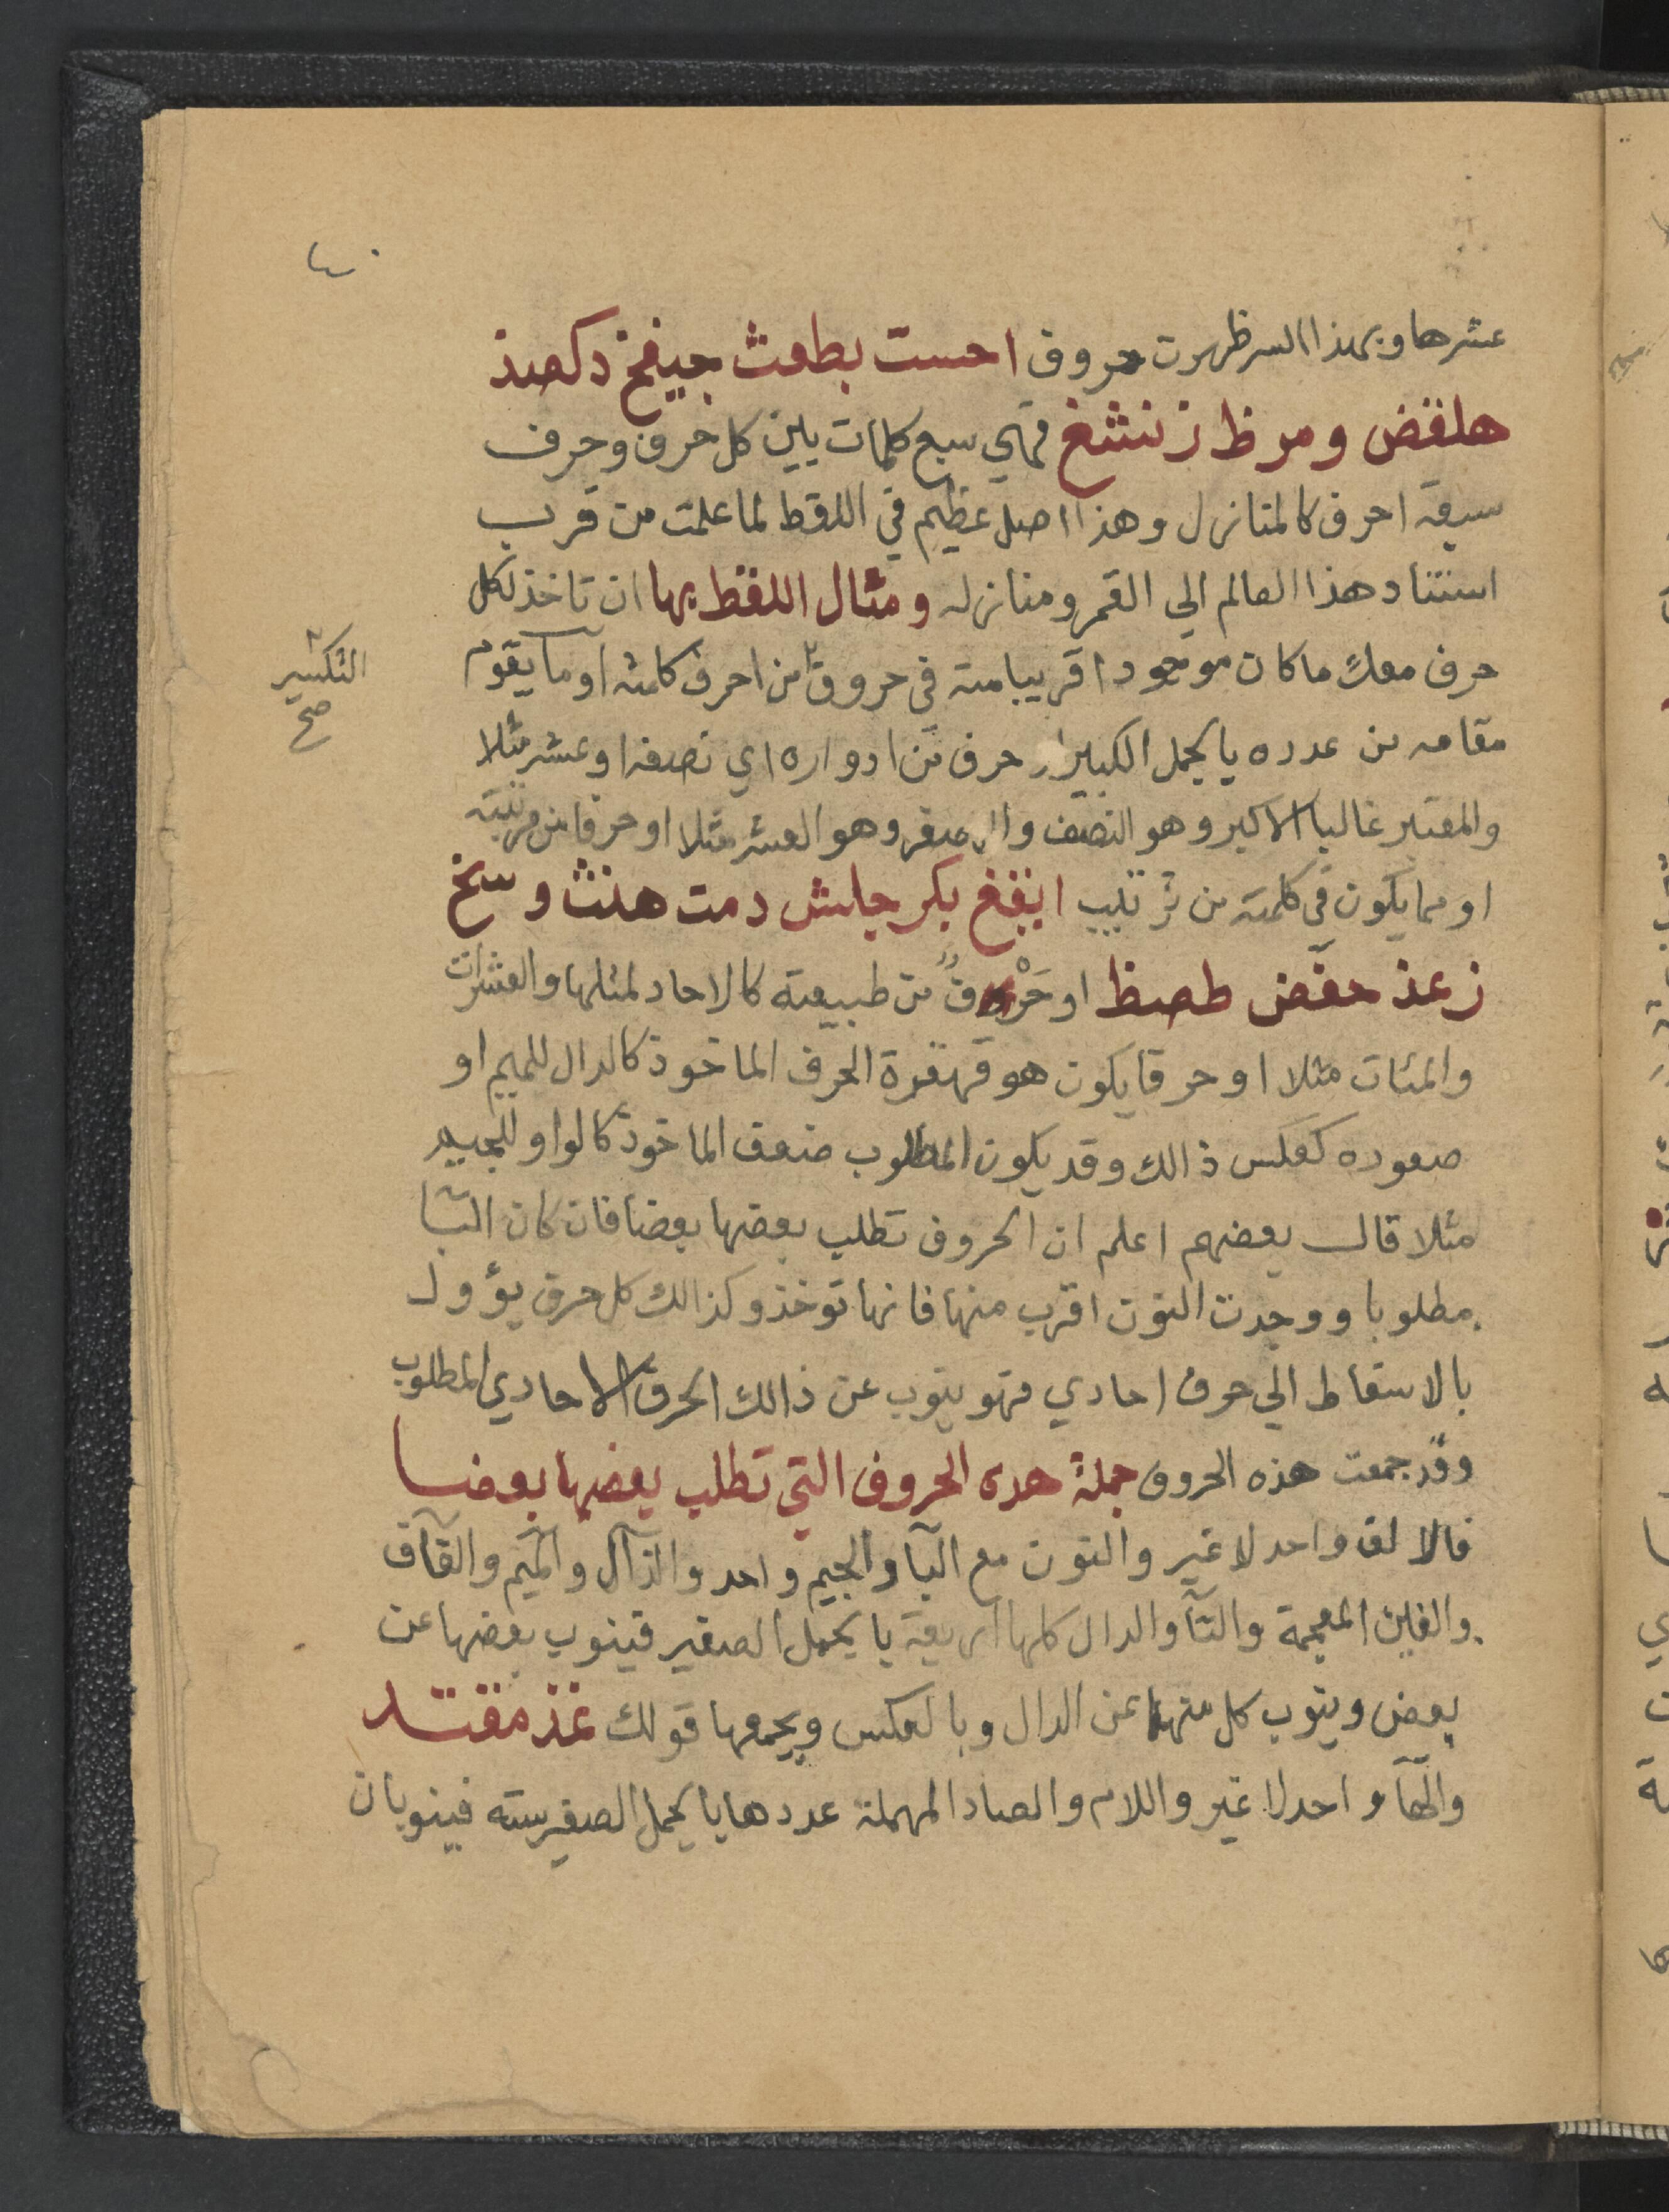 ٤٠
عشرها وبهذا السر ظهرت حروف احست بطعث جيفخ دكصذ
هلقض ومرظ زنشغ فهي سبع كلمات بين كل حرف وحرف
سبعة احرف كالمنازل وهذا اصل عظيم في اللقط لما علمت من قرب
استناد هذا العالم الي القمر ومنازله ومثال اللقط بها ان تاخذ لكل
حرف معك ما كان موجودا قريبا منه في حروف من احرف كلمته او ما يقوم
التكسير
صح
مقامه من عدده بالجمل الكبير او حرف من ادواره اي نصفه او عشره مثلا
والمعتبر غالبا الاكبر وهو النصف والاصغر وهو العشر مثلا او حرفا من مرتبته
او مما يكون في كلمته من ترتيب ايقغ بكر جلش دمت هنث وسخ
زعذ حفض طصظ او حرف من طبيعته كالاحاد لمثلها والعشرات
والمئات مثلا او حرفا يكون هو قهقرة الحرف الماخوذ كالدال للميم او
صعوده كعكس ذالك وقد يكون المطلوب ضعف الماخوذ كالواو للجيم
مثلا قال بعضهم اعلم ان الحروف تطلب بعضها بعضا فان كان البا
مطلوبا ووجدت النون اقرب منها فانها توخذ وكذالك كل حرف يؤول
بالاسقاط الي حرف احادي فهو ينوب عن ذالك الحرف الاحادي المطلوب
وقد جمعت هذه الحروف جملة هده الحروف التي تطلب بعضها بعضا
فالالف واحد لا غير والنون مع البآ والجيم واحد والذآل والميم والقآف
والغين المعجمة والتآ والدال كلها اربعة بالجمل الصغير فينوب بعضها عن
بعض وينوب كل منها عن الدال وبالعكس ويجمعها قولك غذ مقتد
والهآ واحد لا غير واللام والصاد المهملة عددها بالجمل الصغير ستة فينوبان